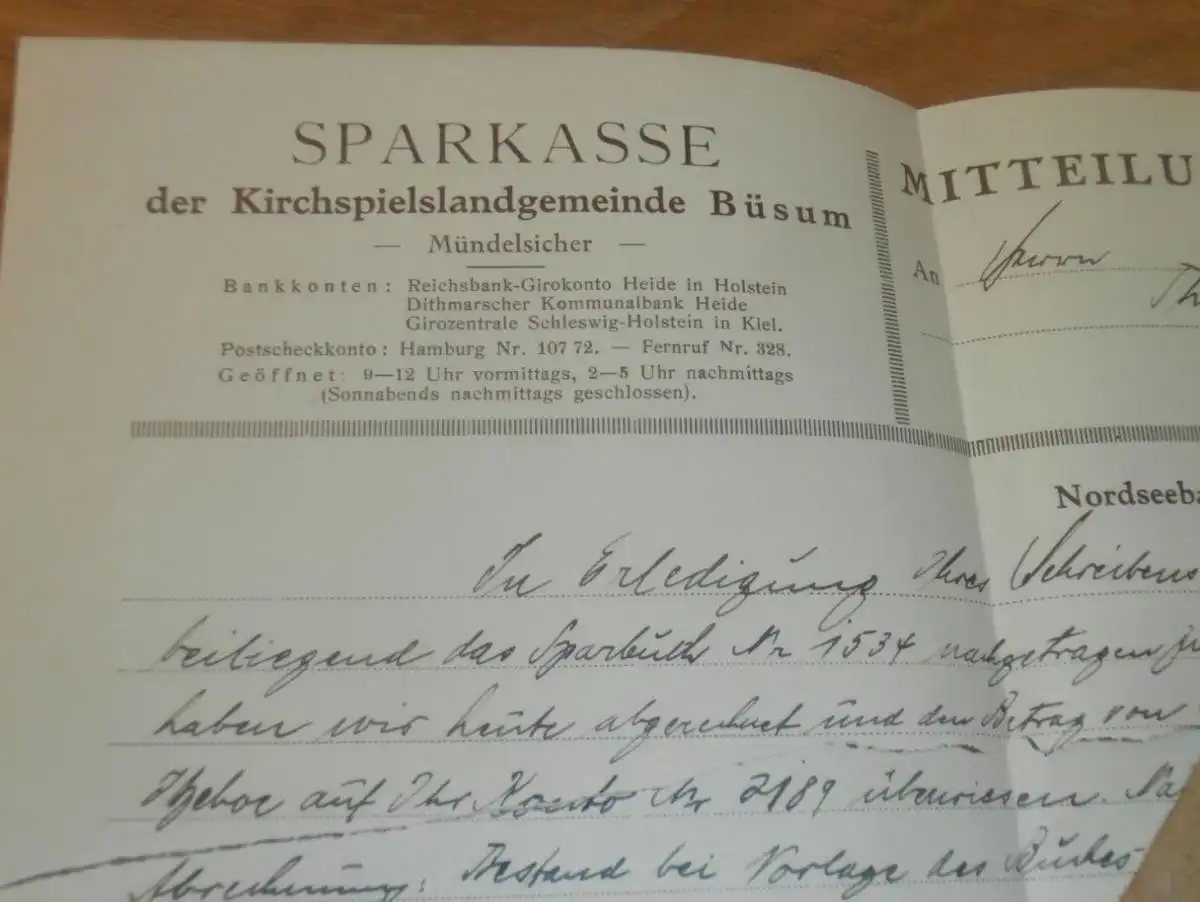 SPARKASSE
der Kirchspielslandgemeinde Büsum
— Mündelsicher —
Bankkonten: Reichsbank-Girokonto Heide in Holstein
Dithmarscher Kommunalbank Heide
Girozentrale Schleswig-Holstein in Kiel.
Postscheckkonto: Hamburg Nr. 107 72. — Fernruf Nr. 328.
Geöffnet: 9—12 Uhr vormittags, 2—5 Uhr nachmittags
(Sonnabends nachmittags geschlossen).
MITTEILU
An Herrn
Th
Nordseeba
In Erledigung Ihres Schreibens
beiliegend das Sparbuch Nr 1534 nachgetragen
haben wir heute abgerechnet und den Betrag von
Itzehoe auf Ihr Konto Nr 2189 überwiesen. Na
Abrechnung: Bestand bei Vorlage des Buches